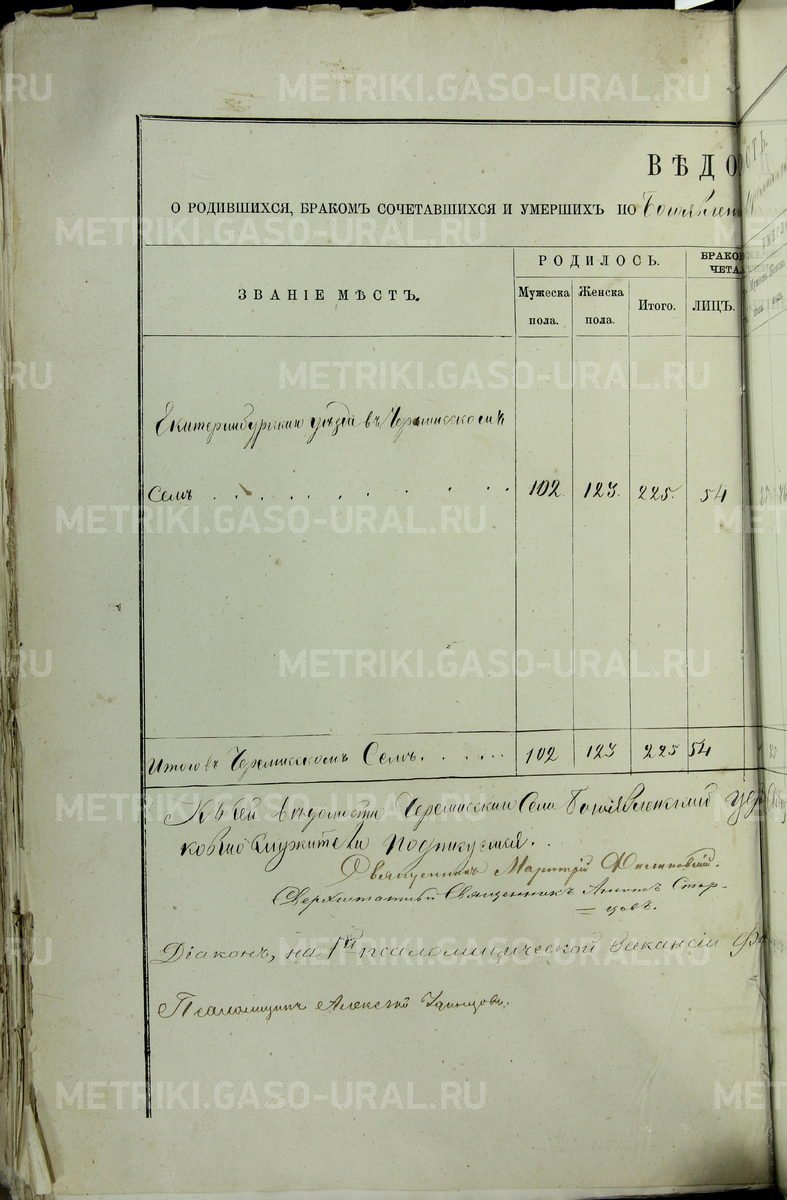 ВѢДО
О РОДИВШИХСЯ, БРАКОМЪ СОЧЕТАВШИХСЯ И УМЕРШИХЪ ПО Богоявлен
ЗВАНІЕ МѢСТЪ.
РОДИЛОСЬ.
БРАКО
ЧЕТА
Мужеска
пола.
Женска
пола.
Итого.
ЛИЦЪ.
Екатеринбургскаго уѣзда въ Черемисскомъ
Селѣ . . . . . . . . . . 102. 123. 225. 54
Итого въ Черемисскомъ Селѣ. . . . . . 102 123 225 54
Къ сей вѣдомости Черемисскаго Села Богоявленской цер
ковнослужители подписуемся.
Священникъ
Сверхштатный Священникъ Стар-
цевъ.
Діаконъ, на псаломщической вакансіи
Псаломщикъ Алексѣй Удинцовъ.
METRIKI.GASO-URAL.RU